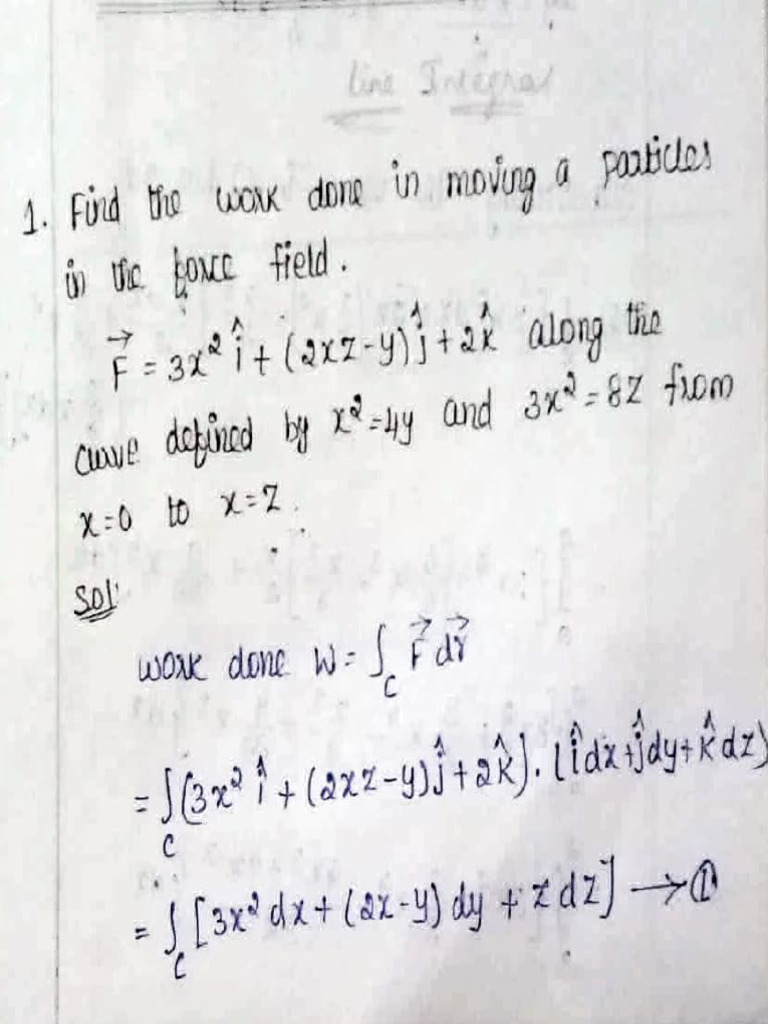 Line Integral
1. Find the work done in moving a particles
in the force field.
F⃗ = 3x² î + (2xz-y) ĵ + 2k̂ along the
curve defined by x²=4y and 3x²=8z from
x=0 to x=z.
Sol:
work done W = ∫_C F⃗ dr⃗
= ∫_C (3x² î + (2xz-y) ĵ + 2k̂). (î dx + ĵ dy + k̂ dz)
= ∫_C [3x² dx + (2x-y) dy + z dz] → ①